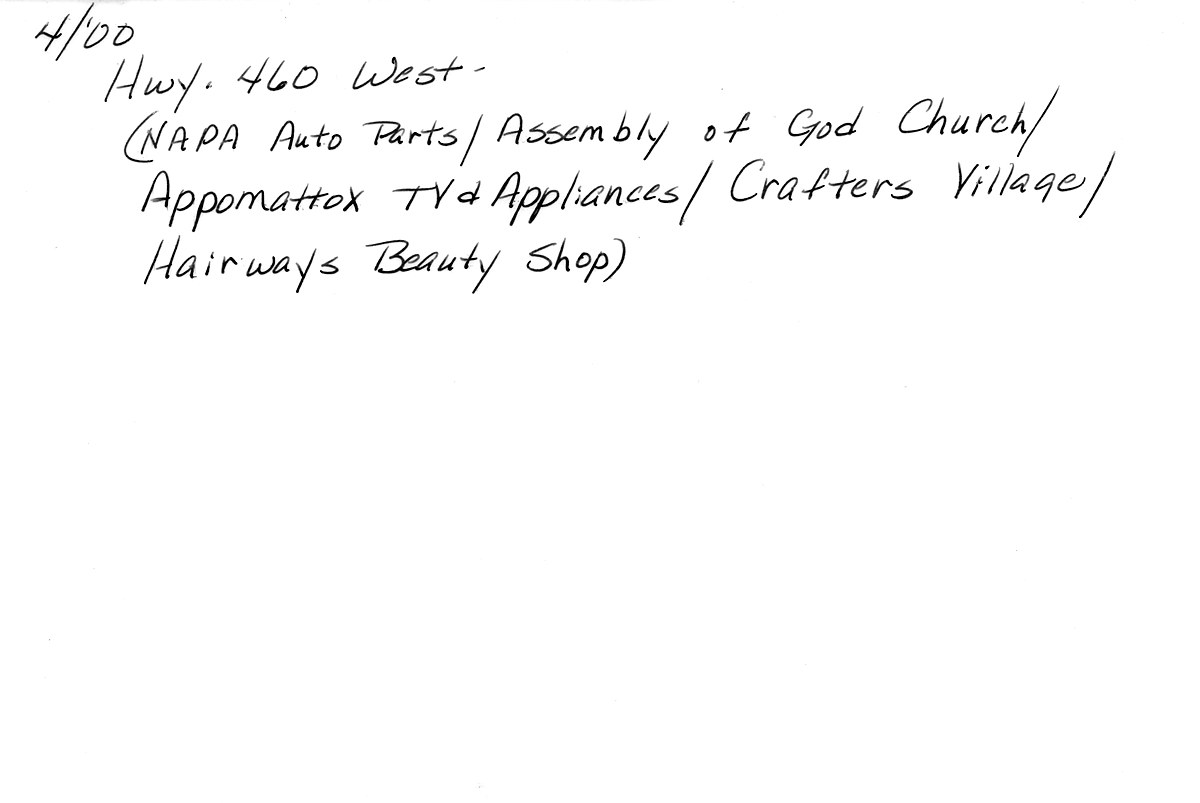 4/'00
Hwy. 460 West-
(NAPA Auto Parts/ Assembly of God Church/
Appomattox TV & Appliances/ Crafters Village/
Hairways Beauty Shop)